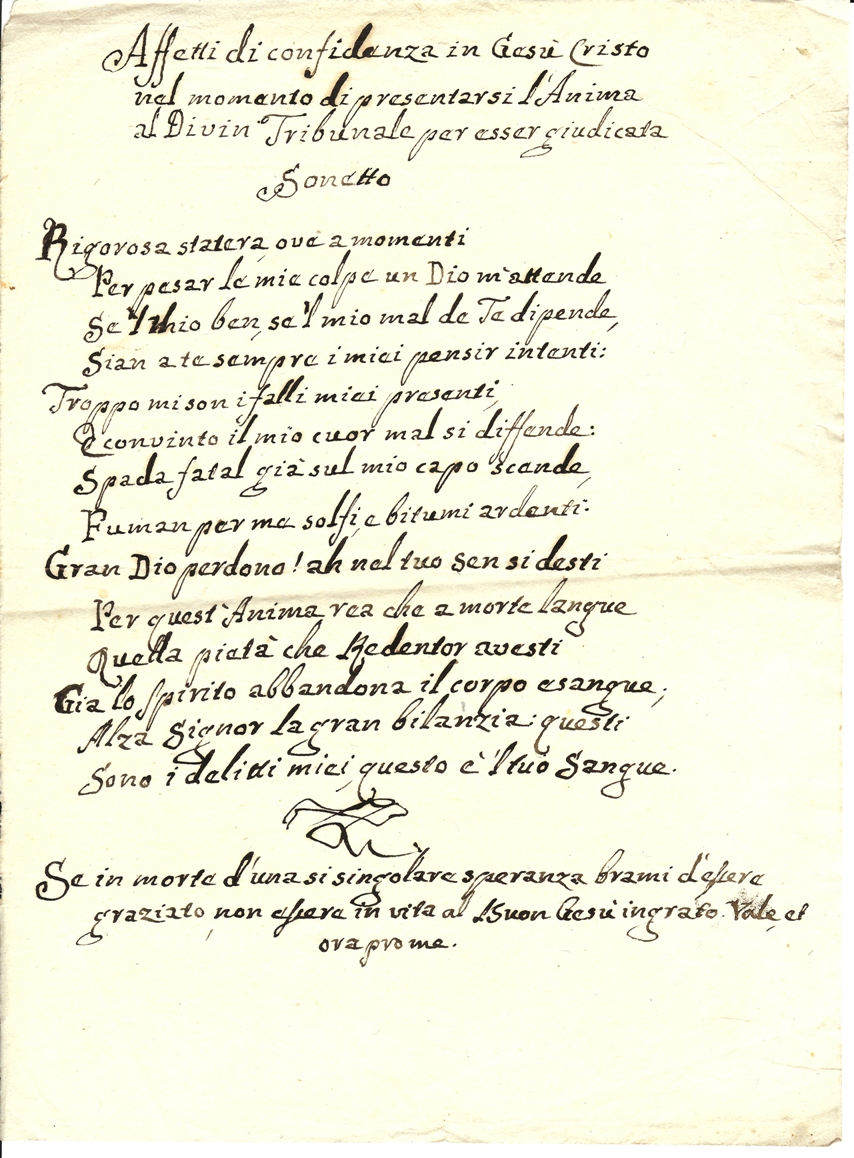 Affetti di confidenza in Gesù Cristo
nel momento di presentarsi l'Anima
al Divin Tribunale per esser giudicata
Sonetto
Rigorosa statera, ove a momenti
Per pesar le mie colpe un Dio m'attende
Se 'l mio ben, se 'l mio mal de Te dipende,
Sian a te sempre i miei pensir intenti:
Troppo mi son i falli miei presenti,
E convinto il mio cuor mal si diffende:
Spada fatal già sul mio capo scende,
Fuman per me solfi, e bitumi ardenti:
Gran Dio perdono! ah nel tuo sen si desti
Per quest'Anima rea che a morte langue
Quella pietà che Redentor avesti
Già lo spirito abbandona il corpo esangue;
Alza Signor la gran bilanzia: questi
Sono i delitti miei, questo è 'l tuo Sangue.
Se in morte d'una sì singolare speranza brami d'essere
graziato, non essere in vita al Buon Gesù ingrato. Vale, et
ora pro me.